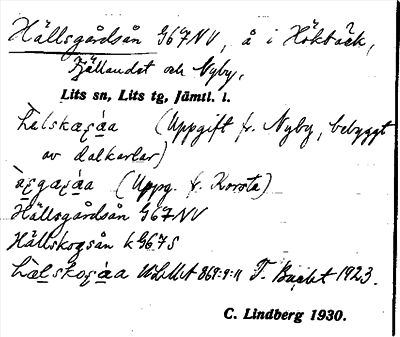 Hällsgårdsån G67NV, å i Hökbäck,
Fjällandet och Nyby,
Lits sn, Lits tg, Jämtl. l.
(Uppgift fr. Nyby, bebyggt
av dalkarlar)
(Uppg. fr. Korsta)
Hällsgårdsån G67NV
Hällskogsån k G67S
ULMA 869:9:11 F. Bucht 1923.
C. Lindberg 1930.